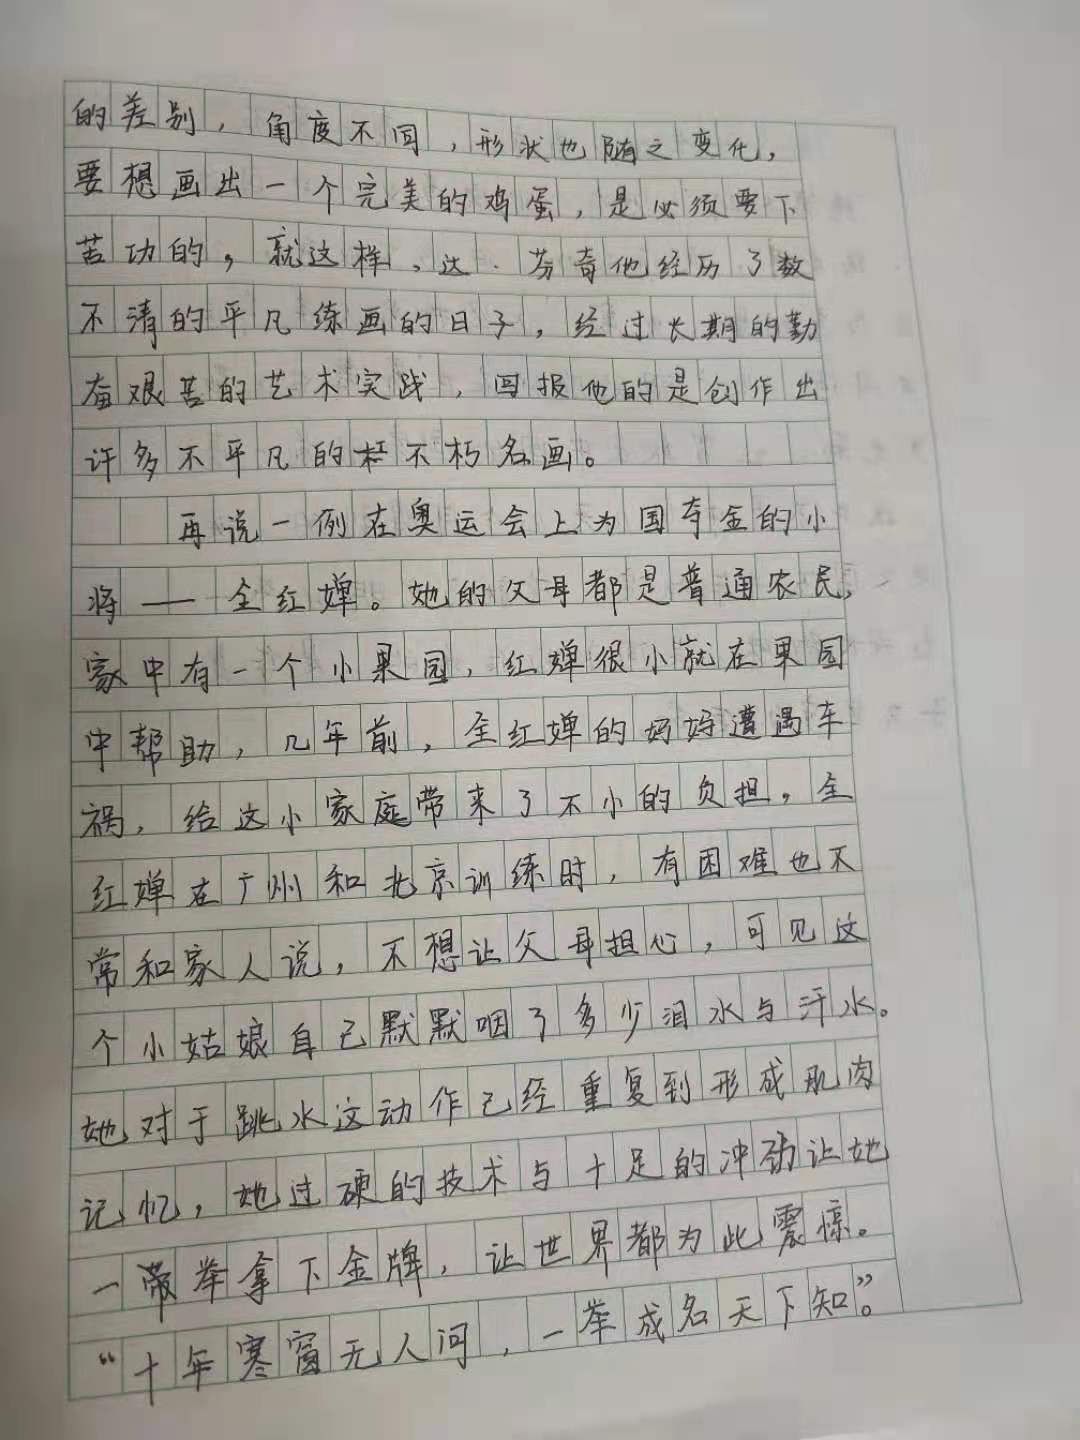 的差别，角度不同，形状也随之变化，
要想画出一个完美的鸡蛋，是必须要下
苦功的，就这样，达·芬奇他经历了数
不清的平凡练画的日子，经过长期的勤
奋艰苦的艺术实践，回报他的是创作出
许多不平凡的不朽名画。
再说一例在奥运会上为国夺金的小
将——全红婵。她的父母都是普通农民，
家中有一个小果园，红婵很小就在果园
中帮助，几年前，全红婵的妈妈遭遇车
祸，给这小家庭带来了不小的负担，全
红婵在广州和北京训练时，有困难也不
常和家人说，不想让父母担心，可见这
个小姑娘自己默默咽了多少泪水与汗水。
她对于跳水这动作已经重复到形成肌肉
记忆，她过硬的技术与十足的冲劲让她
一举拿下金牌，让世界都为此震惊。
“十年寒窗无人问，一举成名天下知”。